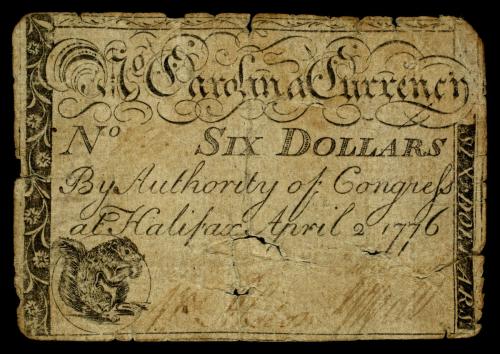 No Carolina Currency
No SIX DOLLARS
By Authority of Congress
at Halifax April 2 1776
SIX DOLLARS